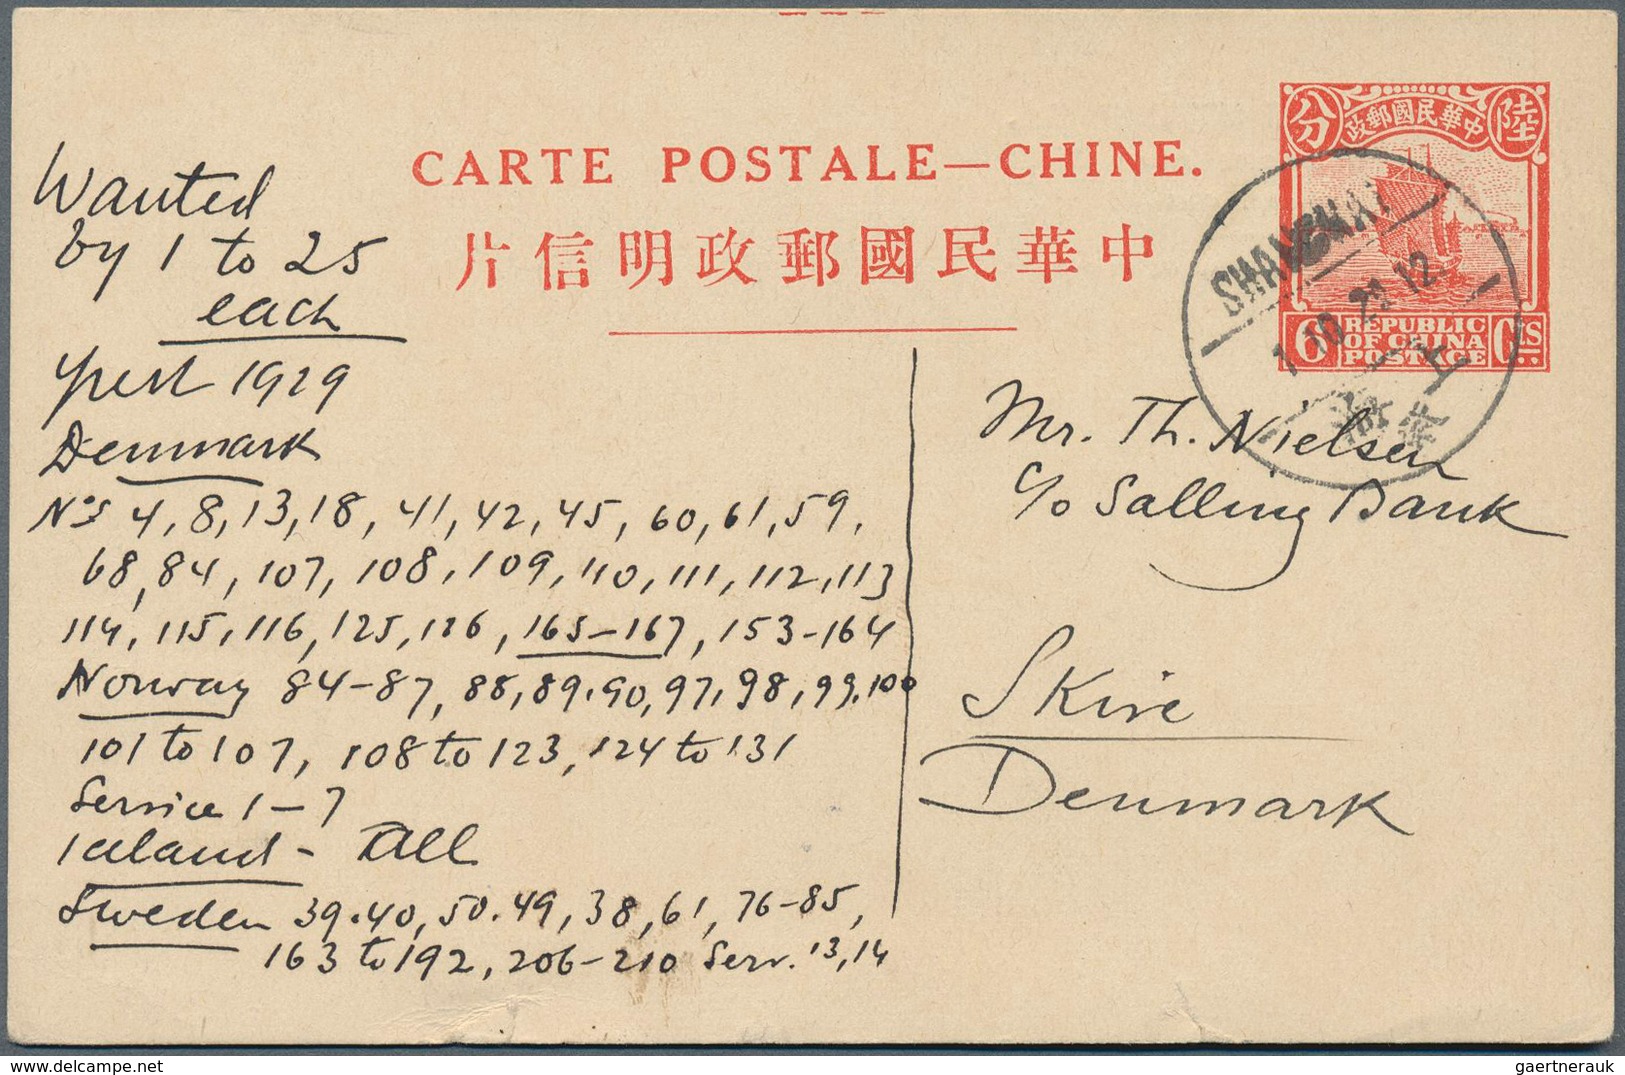 CARTE POSTALE—CHINE.
中華民國郵政明信片
分 中華民國郵政 陸
6 REPUBLIC OF CHINA POSTAGE CTS.
SHANGHAI
1.10.29.12
上海
Wanted
by 1 to 25
each
1929
Denmark
Nos 4, 8, 13, 18, 41, 42, 45, 60, 61, 59,
68, 84, 107, 108, 109, 110, 111, 112, 113
114, 115, 116, 125, 126, 165-167, 153-164
Norway 84-87, 88, 89.90, 97, 98, 99, 100
101 to 107, 108 to 123, 124 to 131
Service 1-7
Iceland - All
Sweden 39.40, 50.49, 38, 61, 76-85,
163 to 192, 206-210 Serv. 13, 14
Mr. Th. Nielsen
c/o Salling Bank
Skive
Denmark
gaertnerauk